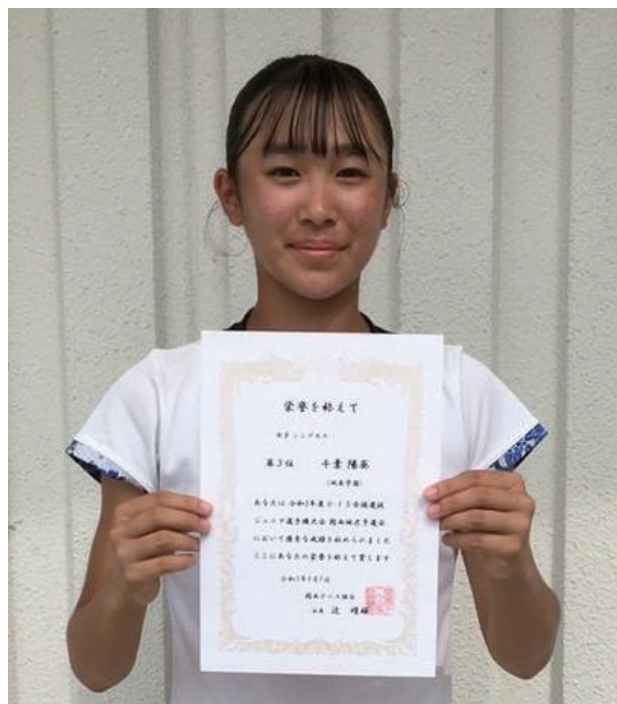 栄誉を称えて
女子シングルス
第3位 千葉陽葵
(城南学園)
あなたは令和3年度U-15全国選抜
ジュニア選手権大会 関西地域予選会
において優秀な成績を収められました
ここにあなたの栄誉を称えて賞します
関西テニス協会
会長 辻 晴雄